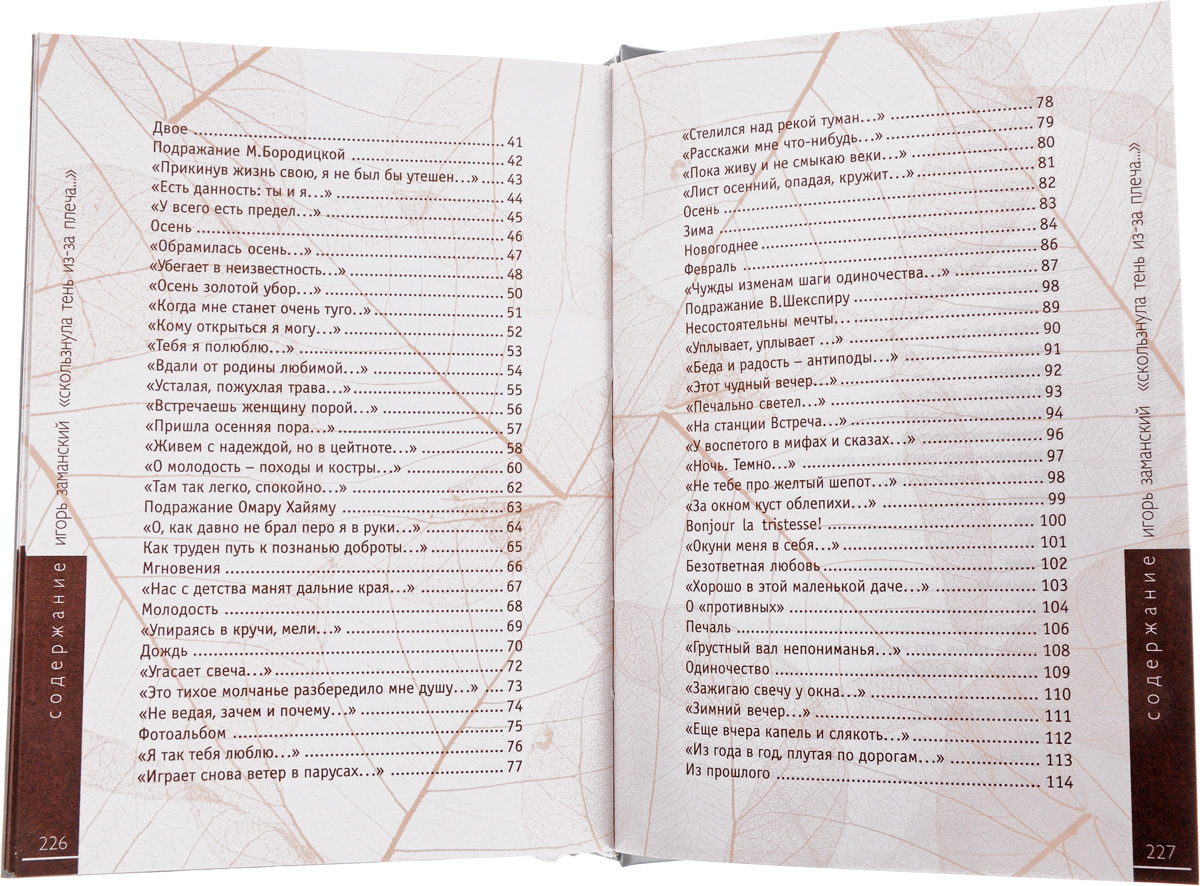 Двое 41
Подражание М.Бородицкой 42
«Прикинув жизнь свою, я не был бы утешен...» 43
«Есть данность: ты и я...» 44
«У всего есть предел...» 45
Осень 46
«Обрамилась осень...» 47
«Убегает в неизвестность...» 48
«Осень золотой убор...» 50
«Когда мне станет очень туго..» 51
«Кому открыться я могу...» 52
«Тебя я полюблю...» 53
«Вдали от родины любимой...» 54
«Усталая, пожухлая трава...» 55
«Встречаешь женщину порой...» 56
«Пришла осенняя пора...» 57
«Живем с надеждой, но в цейтноте...» 58
«О молодость – походы и костры...» 60
«Там так легко, спокойно...» 62
Подражание Омару Хайяму 63
«О, как давно не брал перо я в руки...» 64
Как труден путь к познанью доброты...» 65
Мгновения 66
«Нас с детства манят дальние края...» 67
Молодость 68
«Упираясь в кручи, мели...» 69
Дождь 70
«Угасает свеча...» 72
«Это тихое молчанье разбередило мне душу...» 73
«Не ведая, зачем и почему...» 74
Фотоальбом 75
«Я так тебя люблю...» 76
«Играет снова ветер в парусах...» 77
игорь заманский «скользнула тень из-за плеча...»
содержание
226
«Стелился над рекой туман...» 78
«Расскажи мне что-нибудь...» 79
«Пока живу и не смыкаю веки...» 80
«Лист осенний, опадая, кружит...» 81
Осень 82
Зима 83
Новогоднее 84
Февраль 86
«Чужды изменам шаги одиночества...» 87
Подражание В.Шекспиру 98
Несостоятельны мечты... 89
«Уплывает, уплывает ...» 90
«Беда и радость – антиподы...» 91
«Этот чудный вечер...» 92
«Печально светел...» 93
«На станции Встреча...» 94
«У воспетого в мифах и сказах...» 96
«Ночь. Темно...» 97
«Не тебе про желтый шепот...» 98
«За окном куст облепихи...» 99
Bonjour la tristesse! 100
«Окуни меня в себя...» 101
Безответная любовь 102
«Хорошо в этой маленькой даче...» 103
О «противных» 104
Печаль 106
«Грустный вал непониманья...» 108
Одиночество 109
«Зажигаю свечу у окна...» 110
«Зимний вечер...» 111
«Еще вчера капель и слякоть...» 112
«Из года в год, плутая по дорогам...» 113
Из прошлого 114
игорь заманский «скользнула тень из-за плеча...»
содержание
227